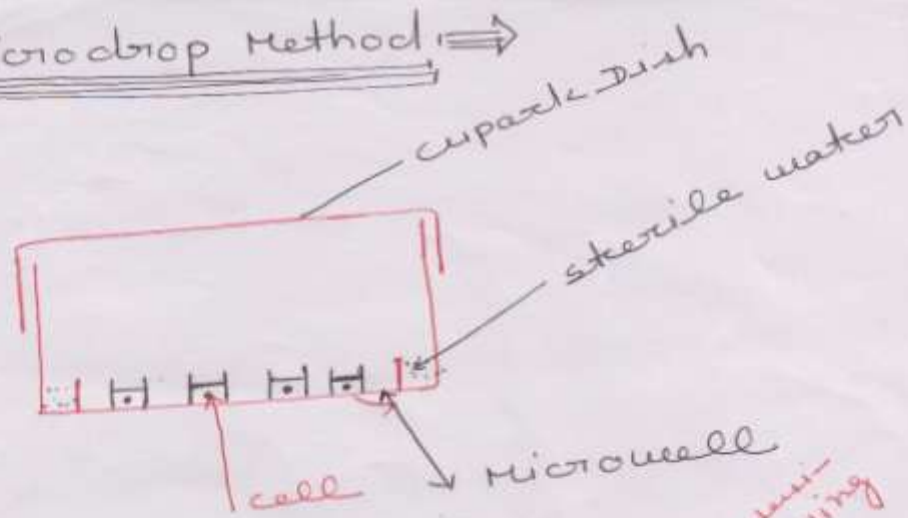 crodrop Method
cupark Dish
sterile water
Microwell
cell